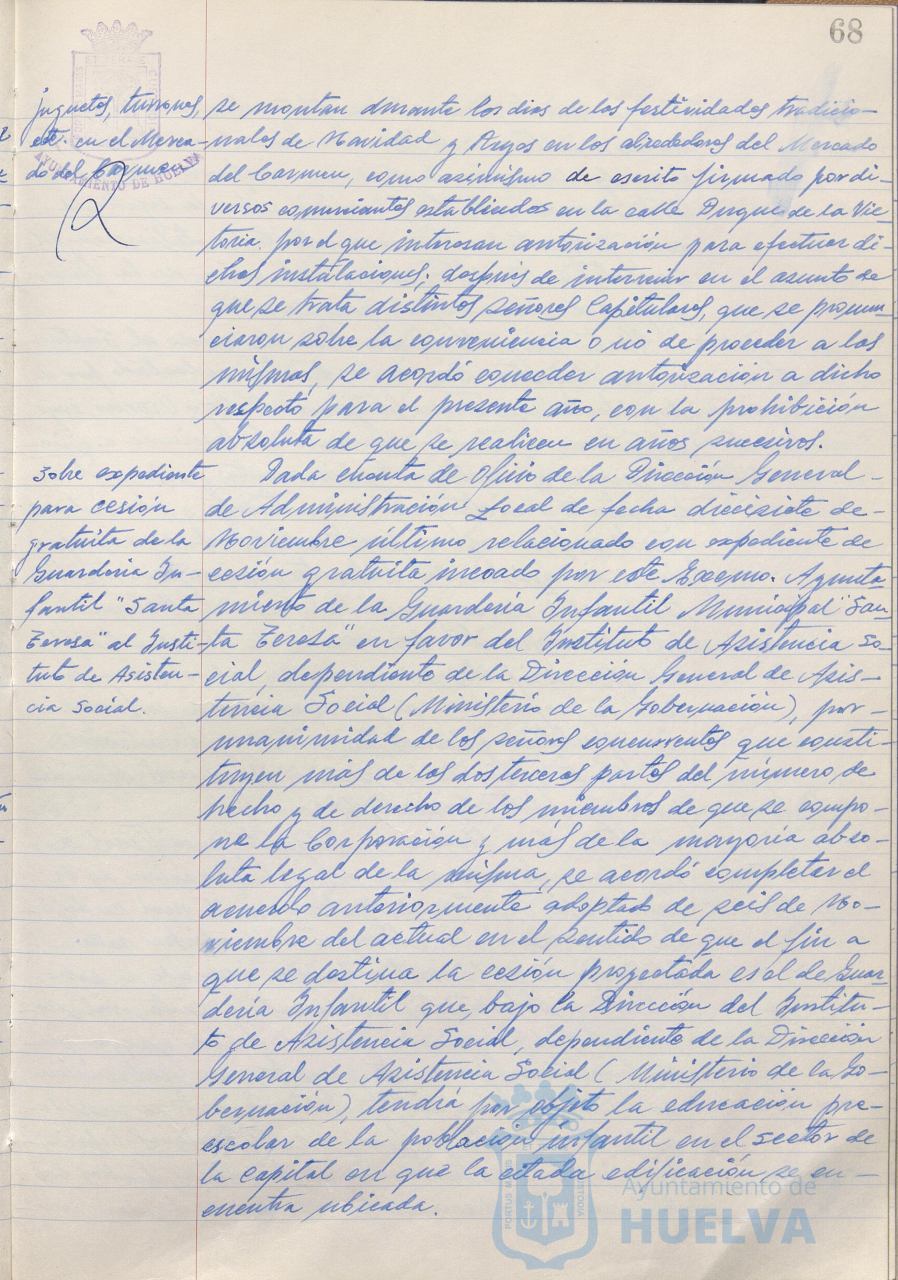 68
juguetes, turrones,
etc. en el Merca-
do del Carmen
AYUNTAMIENTO DE HUELVA
se montan durante los dias de las festividades tradicio-
nales de Navidad y Reyes en los alrededores del Mercado
del Carmen, como asimismo de escrito firmado por di-
versos comerciantes establecidos en la calle Duque de la Vic-
toria. por el que interesan autorización para efectuar di-
chas instalaciones; después de intervenir en el asunto de
que se trata distintos señores Capitulares, que se pronun-
ciaron sobre la conveniencia o nó de proceder a las
mismas, se acordó conceder autorización a dicho
respecto para el presente año, con la prohibición
absoluta de que se realicen en años sucesivos.
Sobre expediente
para cesión
gratuita de la
Guarderia In-
fantil "Santa
Teresa" al Insti-
tuto de Asisten-
cia Social.
Dada cuenta de oficio de la Dirección General
de Administración Local de fecha diecisiete de
Noviembre último relacionado con expediente de
cesión gratuita incoado por este Excmo. Ayunta-
miento de la Guardería Infantil Municipal "San-
ta Teresa" en favor del Instituto de Asistencia So-
cial, dependiente de la Dirección General de Asis-
tencia Social (Ministerio de la Gobernación), por
unanimidad de los señores concurrentes que consti-
tuyen más de las dos terceras partes del número de
hecho y de derecho de los miembros de que se compo-
ne la Corporación y más de la mayoría abso-
luta legal de la misma, se acordó completar el
acuerdo anteriormente adoptado de seis de No-
viembre del actual en el sentido de que el fin a
que se destina la cesión proyectada es el de Guar-
dería Infantil que, bajo la Dirección del Institu-
to de Asistencia Social, dependiente de la Dirección
General de Asistencia Social (Ministerio de la Go-
bernación), tendrá por objeto la educación pre-
escolar de la población infantil en el sector de
la capital en que la citada edificación se en-
cuentra ubicada.
Ayuntamiento de
HUELVA